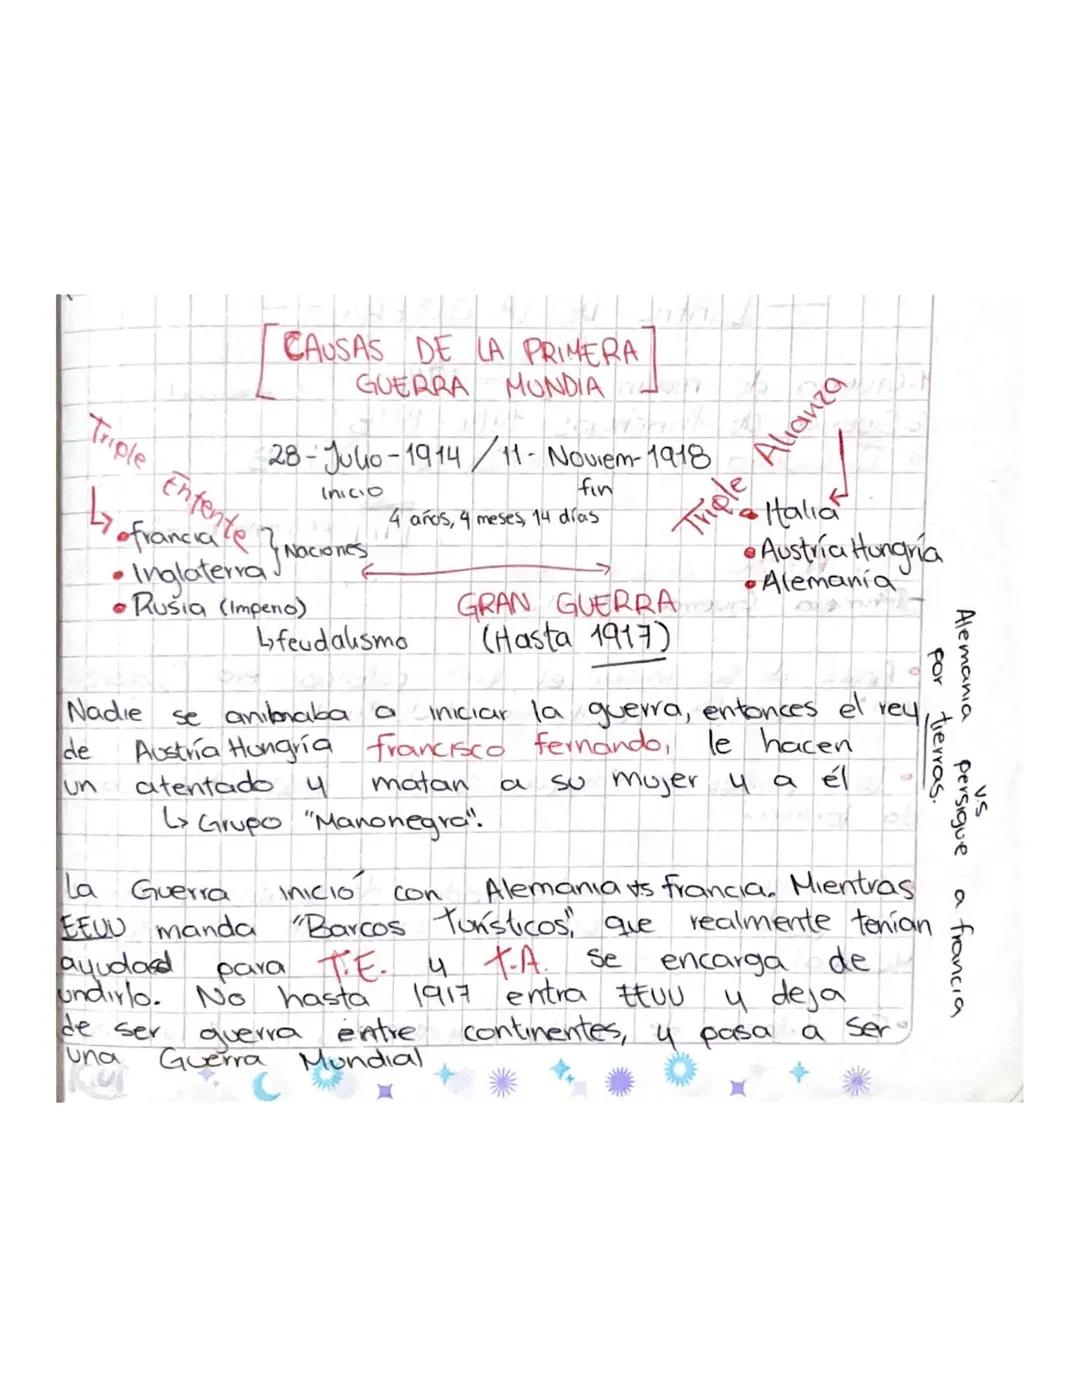 CAUSAS DE LA PRIMERA
GUERRA MUNDIA
28-Julio-1914 / 11-Noviem-1918
inicio fin
4 años, 4 meses, 14 días
Triple Entente
francia
Inglaterra
Naciones
Rusia (Imperio)
feudalismo
Triple Alianza
Italia
Austría Hungría
Alemania
GRAN GUERRA
(Hasta 1917)
Nadie se animaba a iniciar la guerra, entonces el rey
de Austría Hungría francisco fernando, le hacen
un atentado y matan a su mujer y a él
Grupo "Manonegra".
La Guerra inició con Alemania vs francia. Mientras
EEUU manda "Barcos Turísticos", que realmente tenían
ayudad para T.E. y T.A. se encarga de
undirlo. No hasta 1917 entra EEUU y deja
de ser guerra entre continentes, y pasa a ser
una Guerra Mundial
v.s
Alemania persigue a francia
por tierras.